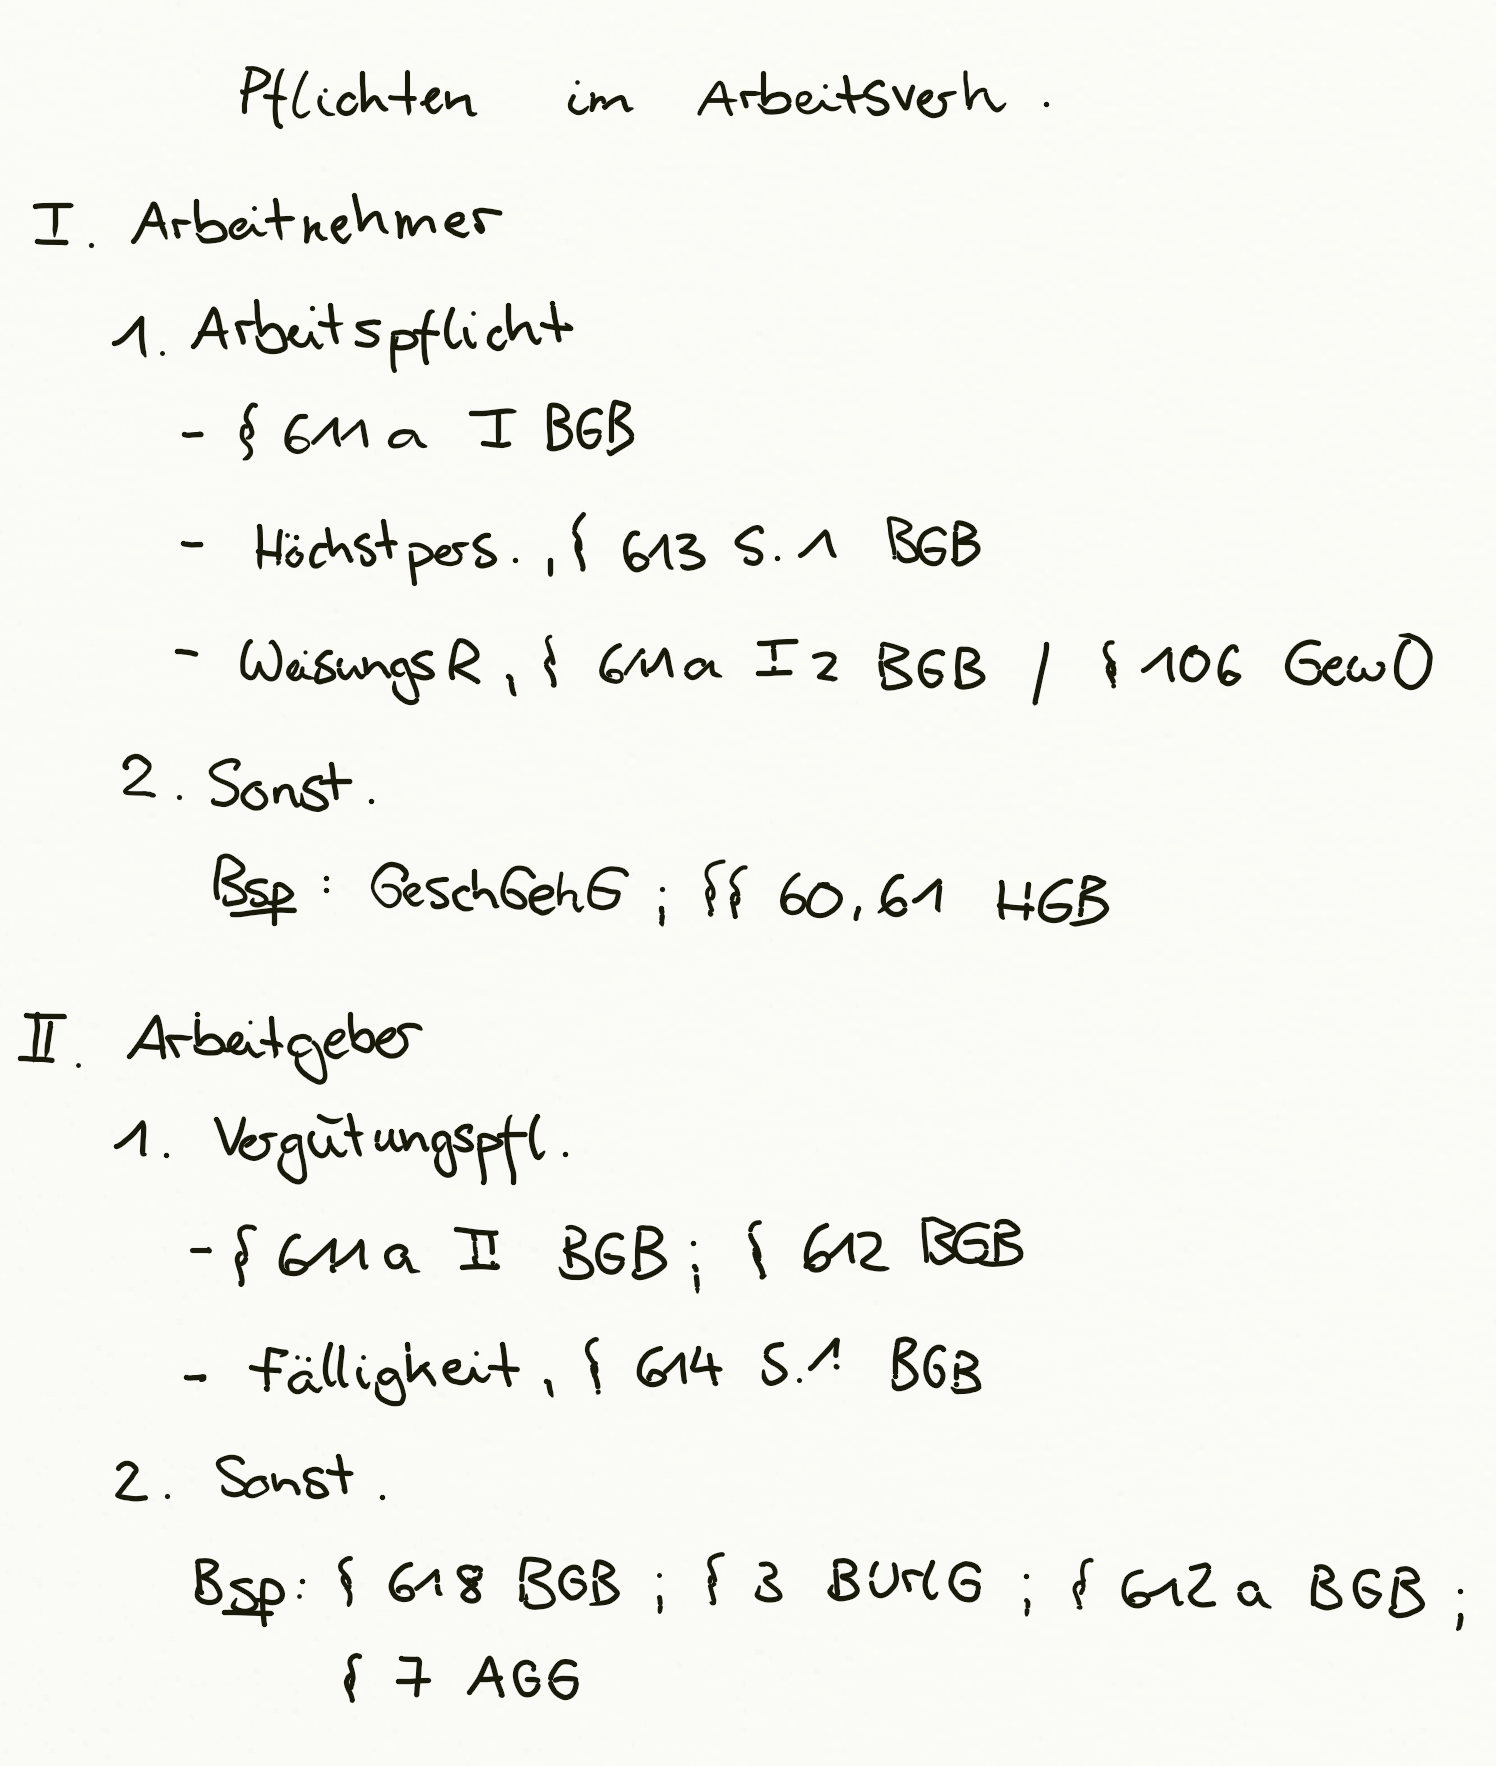 Pflichten im Arbeitsverh.
I. Arbeitnehmer
1. Arbeitspflicht
- § 611 a I BGB
- Höchstpers., § 613 S. 1 BGB
- WeisungsR, § 611 a I 2 BGB / § 106 GewO
2. Sonst.
Bsp: GeschGehG; §§ 60, 61 HGB
II. Arbeitgeber
1. Vergütungspfl.
- § 611 a II BGB; § 612 BGB
- Fälligkeit, § 614 S. 1 BGB
2. Sonst.
Bsp: § 618 BGB; § 3 BUrlG; § 612 a BGB;
§ 7 AGG